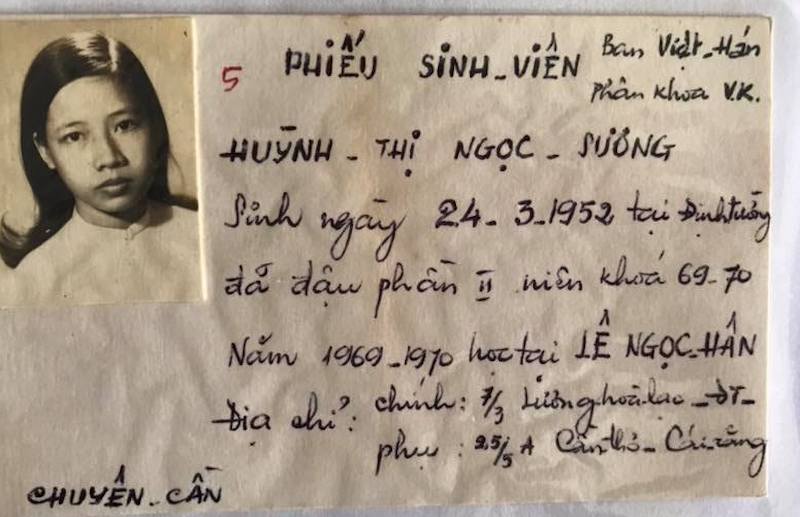 5 PHIẾU SINH_VIÊN Ban Việt_Hán
Phân khoa V.K.
HUỲNH_THỊ NGỌC_SƯƠNG
Sinh ngày 24_3_1952 tại Định tường
đã đậu phần II niên khoá 69_70
Năm 1969_1970 học tại LÊ NGỌC_HÂN
Địa chỉ: chính: 7/3 Lương hoà lạc_ĐT_
phụ: 25/5 A Cần thơ_Cái răng
CHUYÊN_CẦN